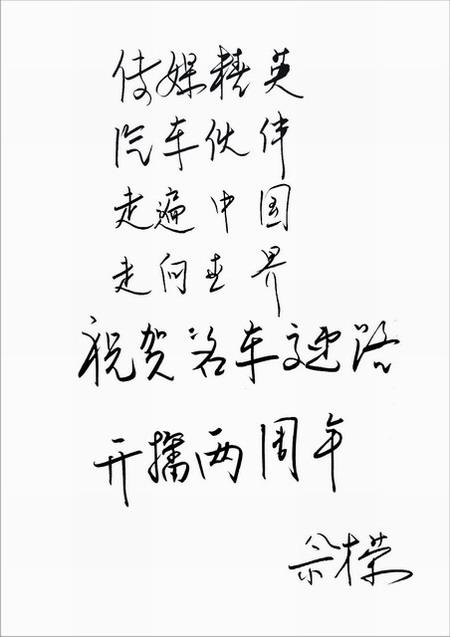 传媒精英
汽车伙伴
走遍中国
走向世界
祝贺名车路
开播两周年
荣